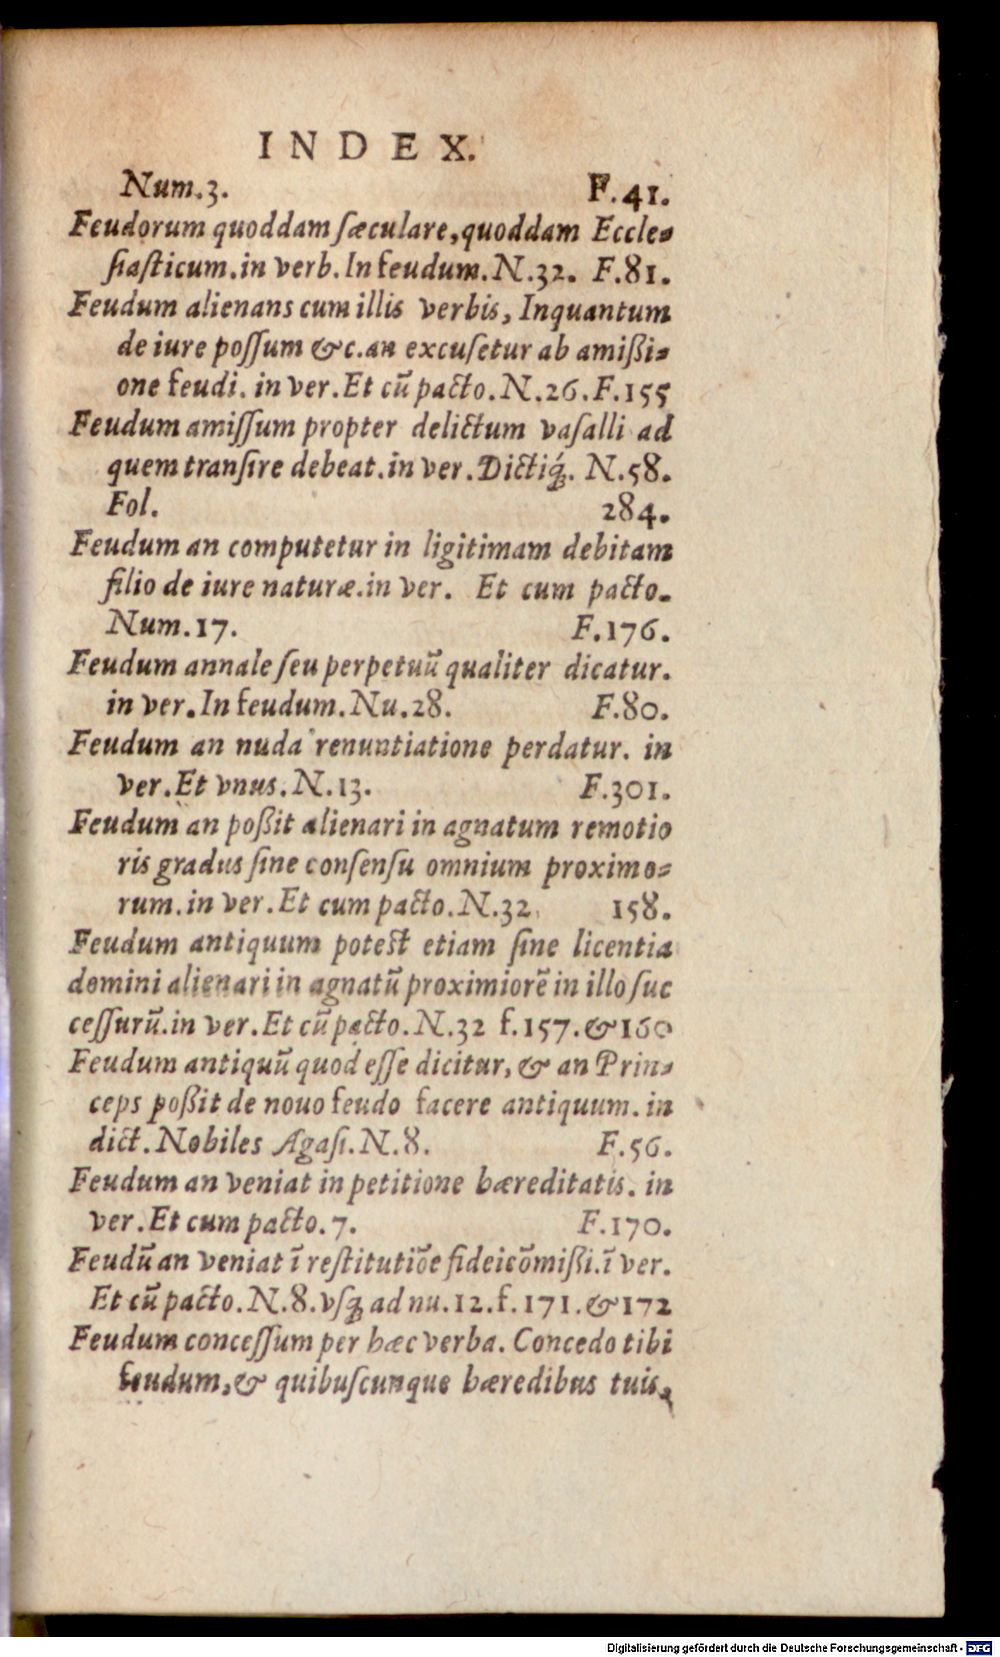 INDEX.
Num.3. F.41.
Feudorum quoddam ſæculare,quoddam Eccle-
ſiaſticum.in verb. In feudum.N.32. F.81.
Feudum alienans cum illis verbis, Inquantum
de iure poſſum &c.an excuſetur ab amißi-
one feudi. in ver.Et cū pacto.N.26.F.155
Feudum amiſſum propter delictum vaſalli ad
quem tranſire debeat.in ver.Dictiq́;. N.58.
Fol. 284.
Feudum an computetur in ligitimam debitam
filio de iure naturæ.in ver. Et cum pacto.
Num.17. F.176.
Feudum annale ſeu perpetuū qualiter dicatur.
in ver.In feudum.Nu.28. F.80.
Feudum an nuda renuntiatione perdatur. in
ver.Et vnus.N.13. F.301.
Feudum an poßit alienari in agnatum remotio
ris gradus ſine conſenſu omnium proximo-
rum.in ver.Et cum pacto.N.32. 158.
Feudum antiquum potest etiam ſine licentia
domini alienari in agnatū proximiorē in illo ſuc
ceſſurū.in ver.Et cū pacto.N.32 f.157.&160
Feudum antiquū quod eſſe dicitur, & an Prin-
ceps poßit de nouo feudo facere antiquum. in
dict.Nobiles Agaſi.N.8. F.56.
Feudum an veniat in petitione hæreditatis. in
ver.Et cum pacto.7. F.170.
Feudū an veniat ī reſtitutiōe fideicōmißi.ī ver.
Et cū pacto.N.8.vſq; ad nu.12.f.171.&172
Feudum conceſſum per hæc verba. Concedo tibi
feudum,& quibuſcunque hæredibus tuis,
Digitalisierung gefördert durch die Deutsche Forschungsgemeinschaft - DFG